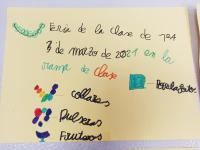 Feria de la clase de 1ºA
3 de marzo de 2021 en la
trama de clase
Papelarteros
Collares
Pulseras
Fruteros